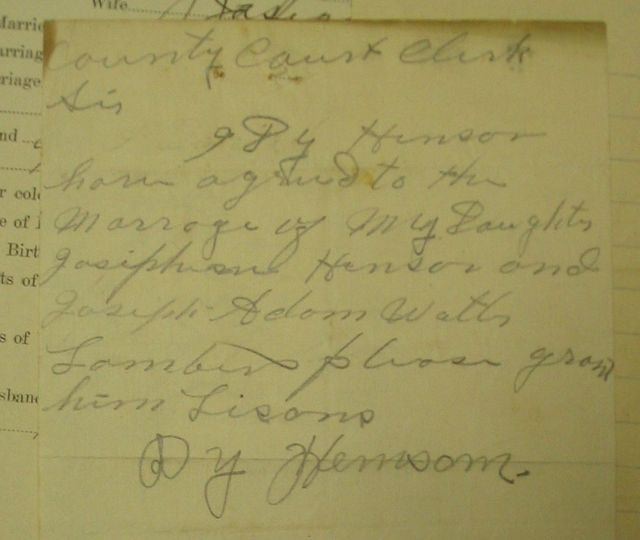 Wife
Marrie
arriag
rriage
nd
r col
e of
Birt
ts of
s of
sband
County Court Clerk
Sir
I Dy Henson
have agreed to the
Marrage of My Daughter
Josiphine Henson and
Joseph Adam Watts
Lambers please grant
him Lisons
Dy Hemsom.